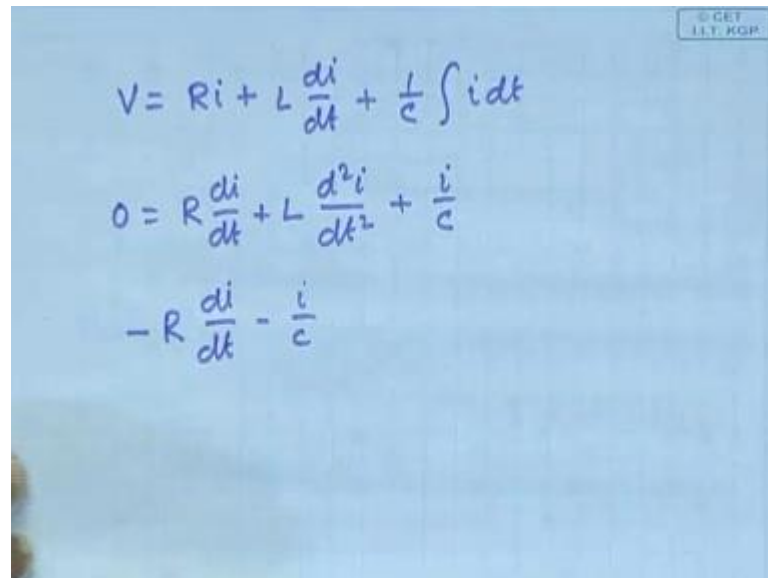 © CET
I.I.T. KGP
V = Ri + L di/dt + 1/c ∫ i dt
0 = R di/dt + L d²i/dt² + i/c
- R di/dt - i/c